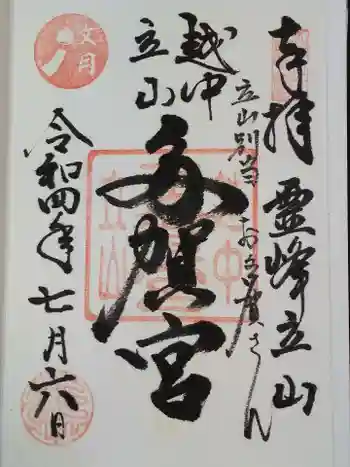 奉拝 霊峰立山
立山別当 お多賀さん
越中
立山
多賀宮
令和四年七月六日
文月
越中
立山